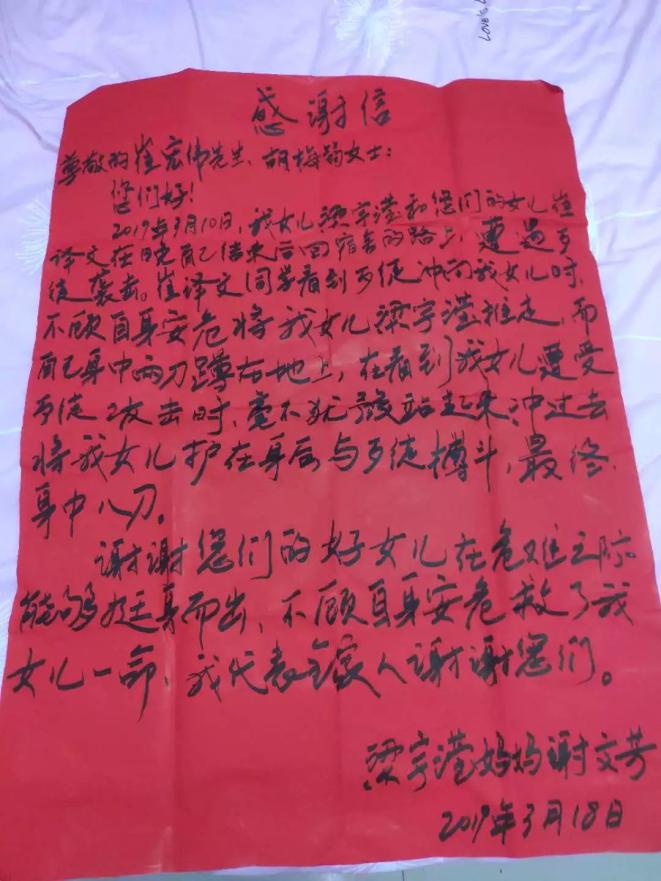 LOVE is L
感谢信
尊敬的崔宏伟先生、胡梅菊女士：
您们好！
2019年3月10日，我女儿梁宇滢和您们的女儿崔
译文在晚自己结束后回宿舍的路上，遭遇歹
徒袭击。崔译文同学看到歹徒冲向我女儿时，
不顾自身安危将我女儿梁宇滢推走，而
自己身中两刀蹲在地上，在看到我女儿遭受
歹徒2次击时，毫不犹豫站起来冲过去
将我女儿护在身后与歹徒搏斗，最终
身中八刀。
谢谢您们的好女儿在危难之际
能够挺身而出，不顾自身安危救了我
女儿一命，我代表全家人谢谢您们。
梁宇滢妈妈谢文芳
2019年3月18日